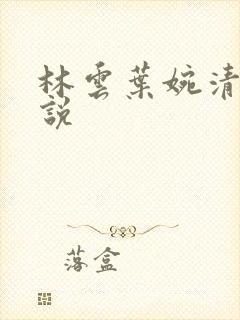 林雲葉婉清
說
落盒